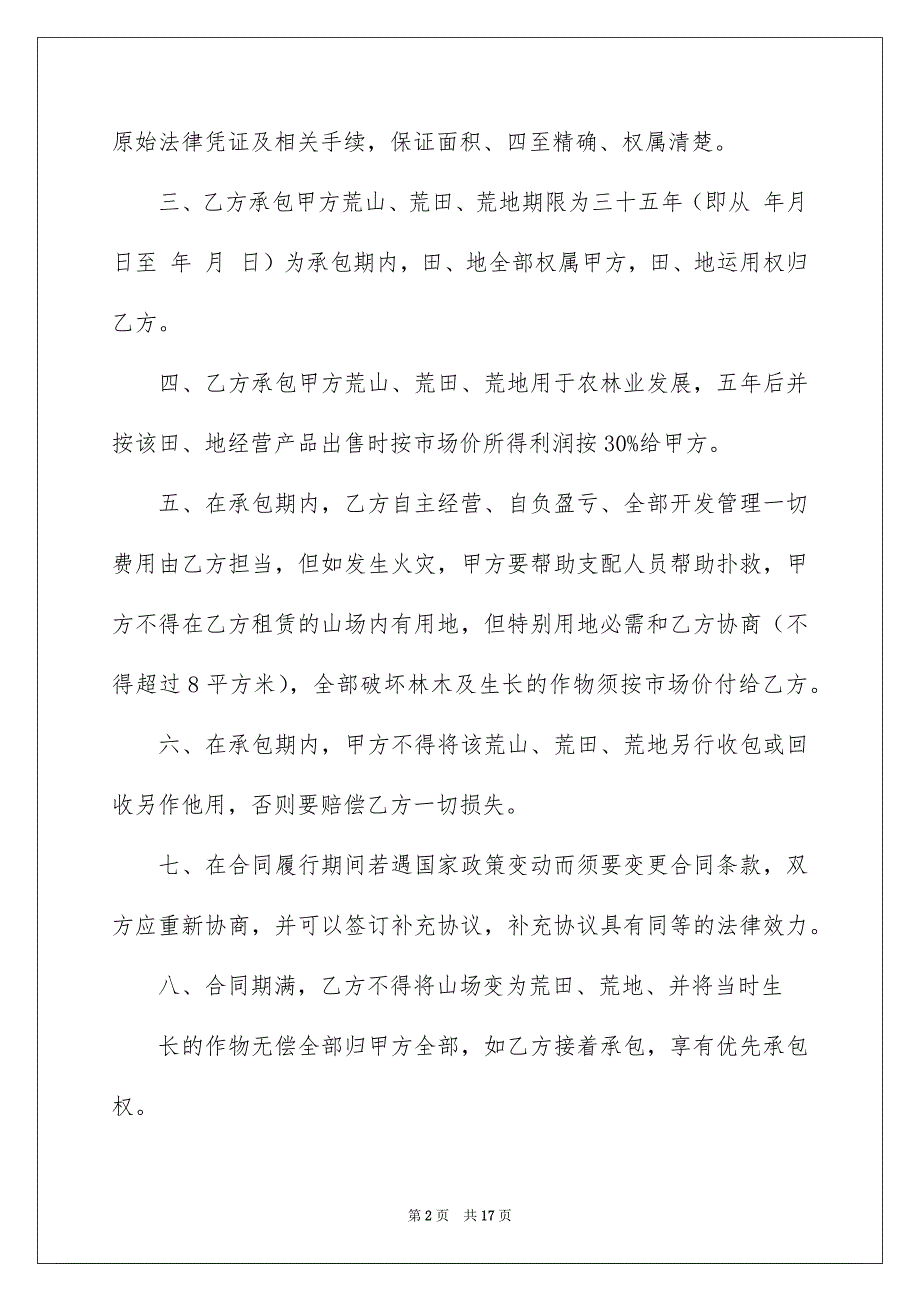 原始法律凭证及相关手续，保证面积、四至精确、权属清楚。
三、乙方承包甲方荒山、荒田、荒地期限为三十五年（即从 年月
日至 年 月 日）为承包期内，田、地全部权属甲方，田、地运用权归
乙方。
四、乙方承包甲方荒山、荒田、荒地用于农林业发展，五年后并
按该田、地经营产品出售时按市场价所得利润按30%给甲方。
五、在承包期内，乙方自主经营、自负盈亏、全部开发管理一切
费用由乙方担当，但如发生火灾，甲方要帮助支配人员帮助扑救，甲
方不得在乙方租赁的山场内有用地，但特别用地必需和乙方协商（不
得超过8平方米），全部破坏林木及生长的作物须按市场价付给乙方。
六、在承包期内，甲方不得将该荒山、荒田、荒地另行收包或回
收另作他用，否则要赔偿乙方一切损失。
七、在合同履行期间若遇国家政策变动而须要变更合同条款，双
方应重新协商，并可以签订补充协议，补充协议具有同等的法律效力。
八、合同期满，乙方不得将山场变为荒田、荒地、并将当时生
长的作物无偿全部归甲方全部，如乙方接着承包，享有优先承包
权。
第2页 共17页